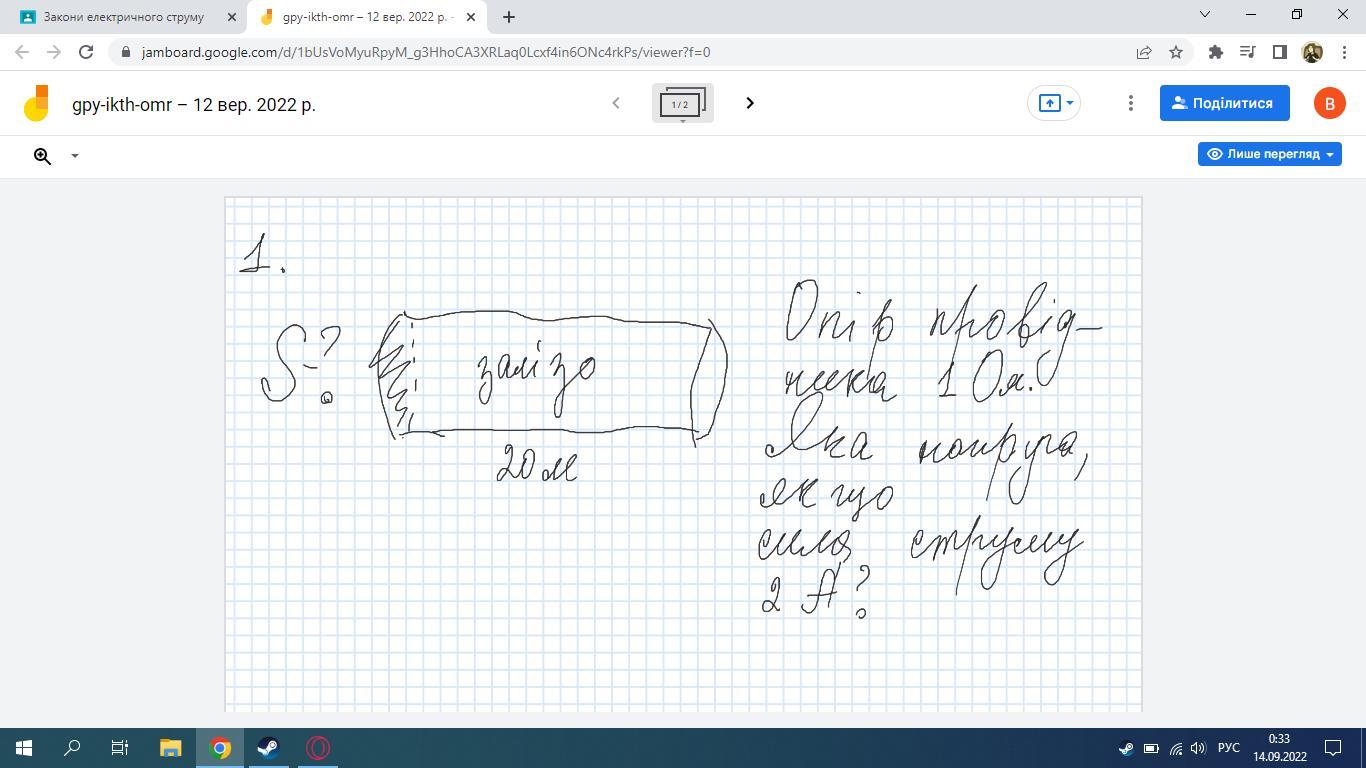 Закони електричного струму
gpy-ikth-omr – 12 вер. 2022 р. -
jamboard.google.com/d/1bUsVoMyuRpyM_g3HhoCA3XRLaq0Lcxf4in6ONc4rkPs/viewer?f=0
gpy-ikth-omr – 12 вер. 2022 р.
1 / 2
Поділитися
В
Лише перегляд
1.
S-?
залізо
20 м
Опір провід-
ника 1 Ом.
Яка напруга,
якщо
сила струму
2 А?
РУС
0:33
14.09.2022